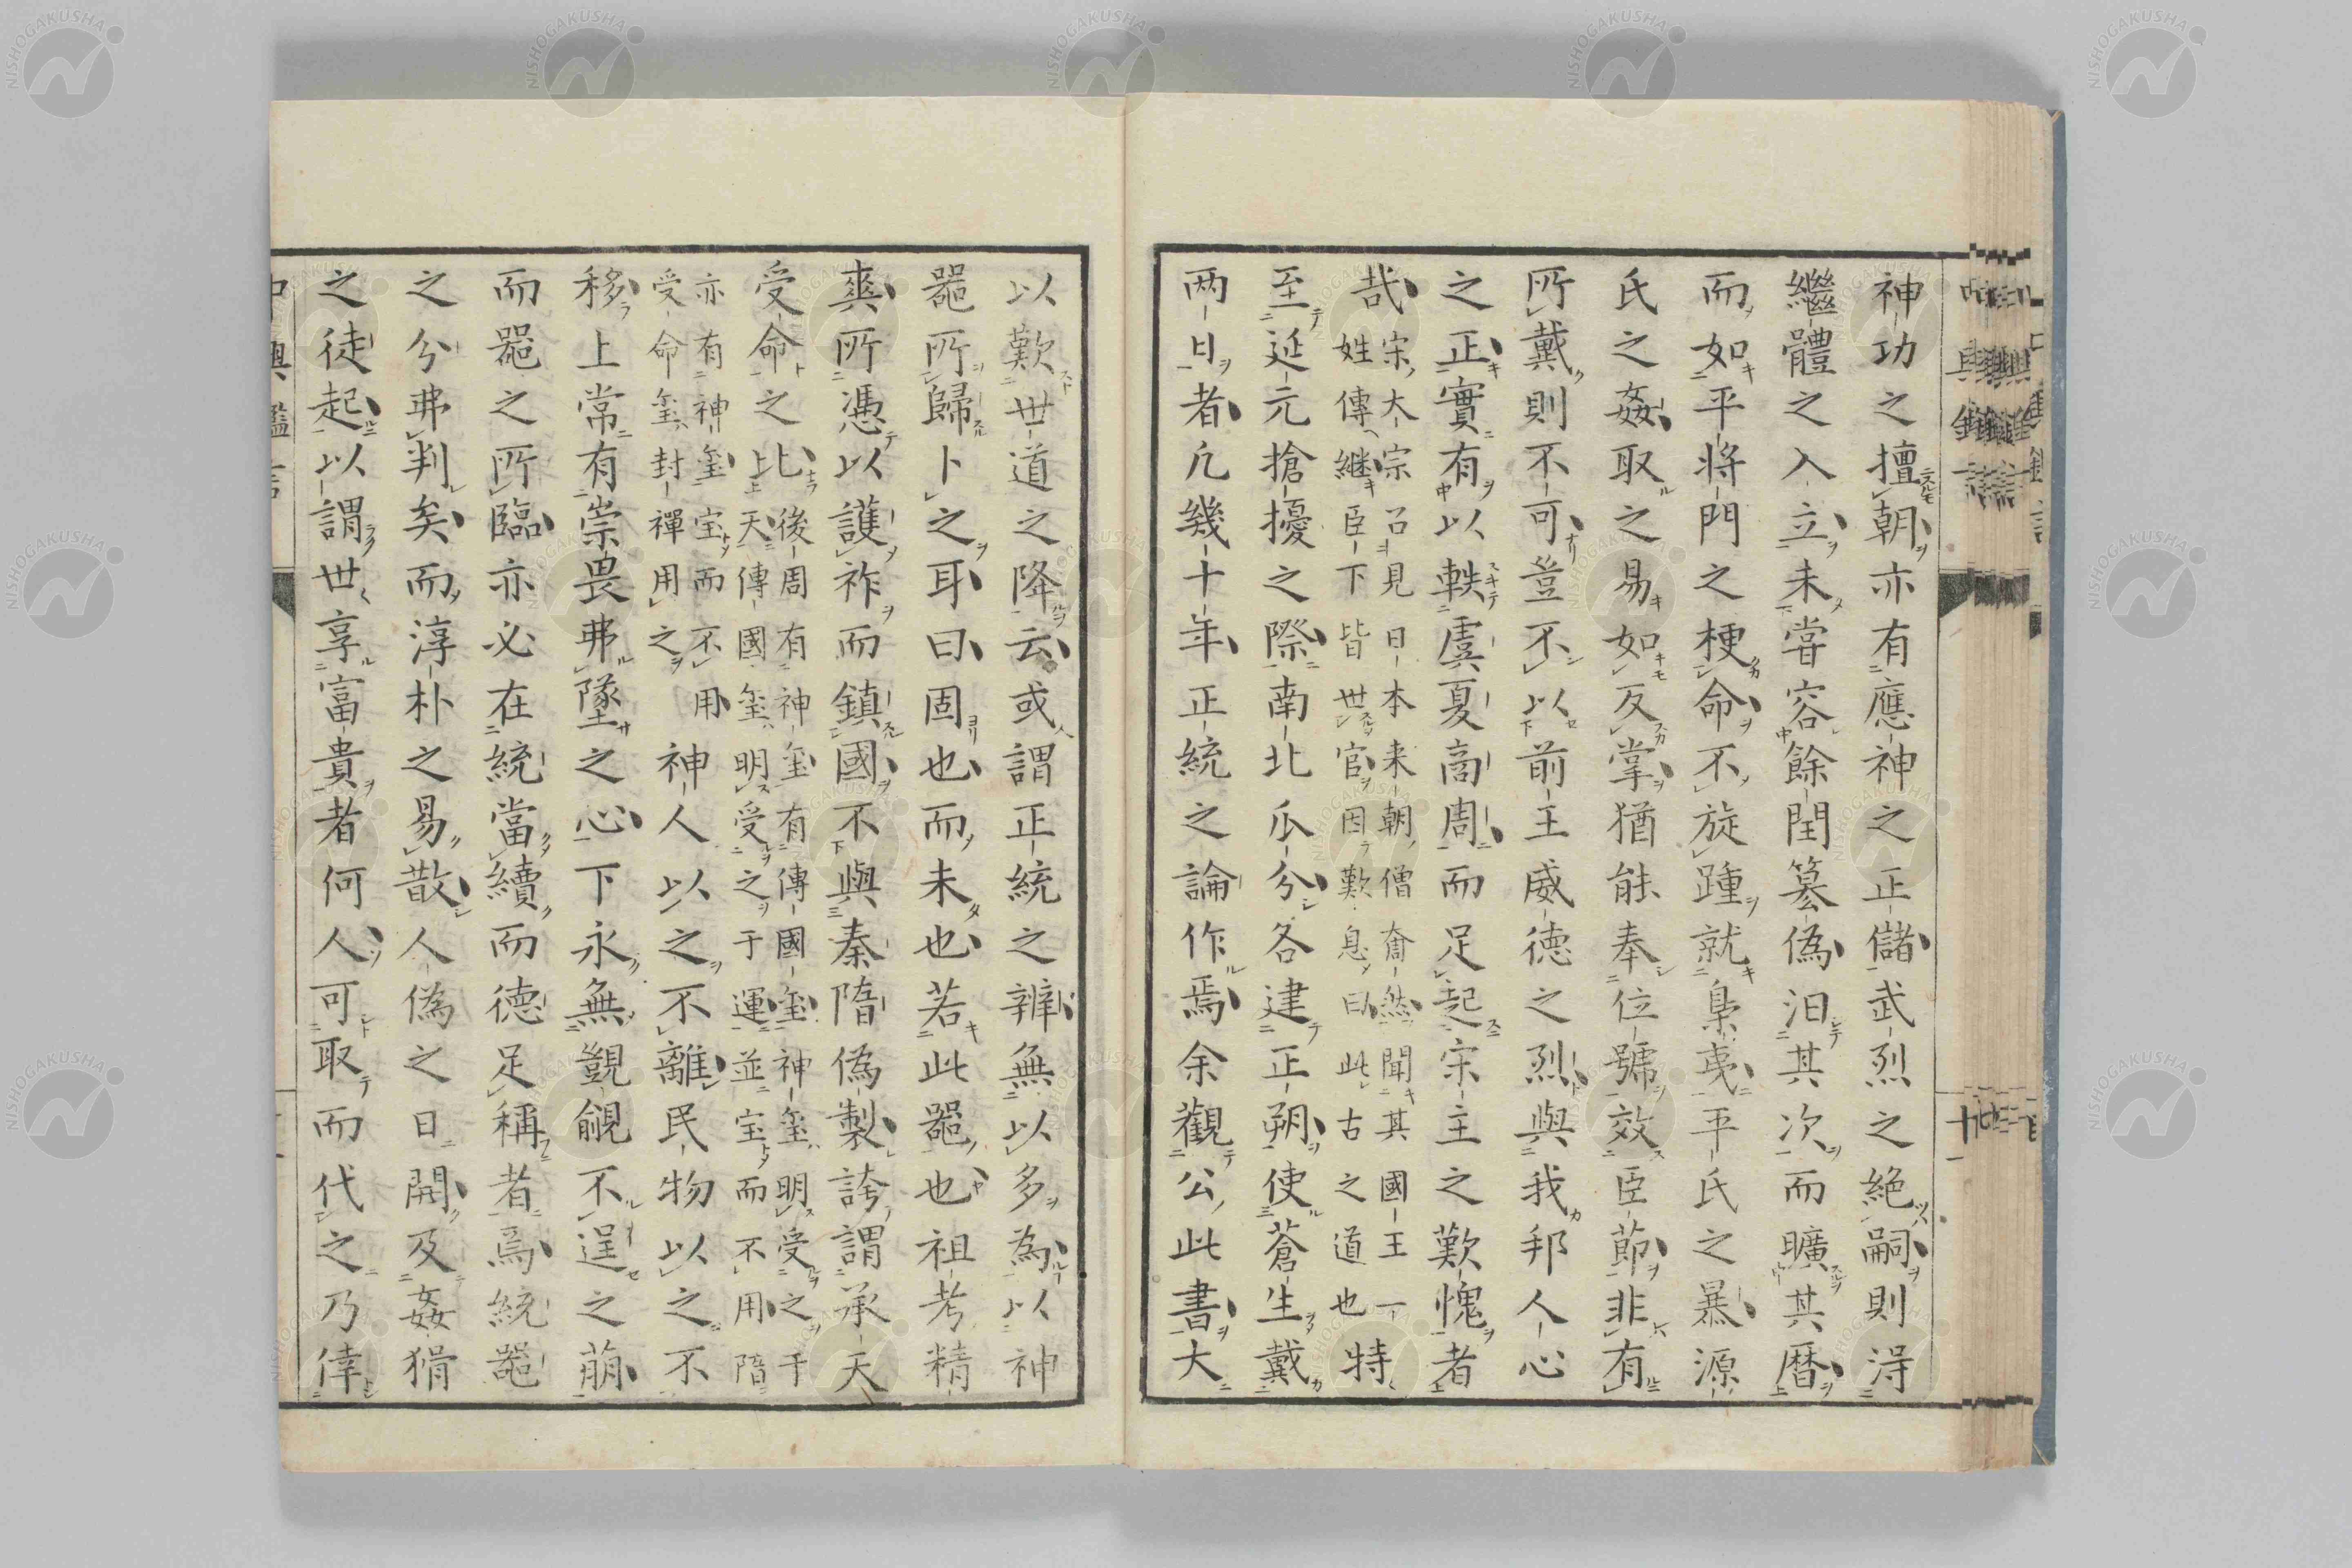 神功之擅朝亦有應神之正儲武烈之絶嗣則得
繼體之入立未嘗容餘閏簒偽汨其次而曠其曆
而如平將門之梗命不旋踵就梟夷平氏之暴源
氏之姦取之易如反掌猶能奉位號效臣節非有
所戴則不可豈不以前王威德之烈與我邦人心
之正實有以軼虞夏商周而足起宋主之歎愧者
哉宋太宗召見日本来朝僧奝然聞其國王一
姓傳継臣下皆世官因歎息曰此古之道也特
至延元搶擾之際南北瓜分各建正朔使蒼生戴
两日者凢幾十年正統之論作焉余觀公此書大
以歎世道之降云或謂正統之辨無以多為以神
噐所歸卜之耳曰固也而未也若此噐也祖考精
爽所憑以護祚而鎮國不與秦隋偽製誇謂承天
受命之比後周有神璽有傳國璽神璽明受之于
上天傳國璽明受之于運並宝而不用隋
亦有神璽宝而不用
受命璽封禪用之神人以之不離民物以之不
移上常有崇畏弗墜之心下永無覬覦不逞之萠
而噐之所臨亦必在統當續而德足稱者焉統噐
之分弗判矣而淳朴之易散人偽之日開及姦猾
之徒起以謂世享富貴者何人可取而代之乃倖
NISHOGAKUSHA